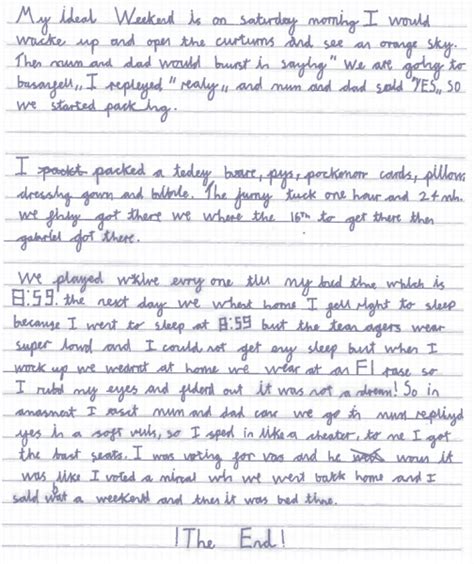 My ideal Weekend is on saturday morning I would
wacke up and open the curtums and see an orange sky.
Then mum and dad would buurst in saying" We are going to
I repleyed "realy,, and mum and dad sald "YES,, SO
we started pack ing.
I packt packed a tedey bare, pys, pockomon cards, pillow,
dressing gown and The jurny tuck one hour and 24 mh.
we got there we where the 16th to get there then
gabriel got there.
We played evry one till my bed time which is
8:59. the next day we whent home I fell right to sleep
because I went to sleep at 8:59 but the tean agers wear
super loud and I could not get eny sleep but when I
wock up we wearnt at home we wear at an F1 rase so
I rubd my eyes and out it was not a dream! So in
I mum and dad can we go in mum repliyd
yes in a soft so I sped in like a cheater, to me I got
the bast seats. I was voting for vas and he woun it
was like I voted a wh we went back home and I
sald wat a weekend and then it was bed time.
!The End!